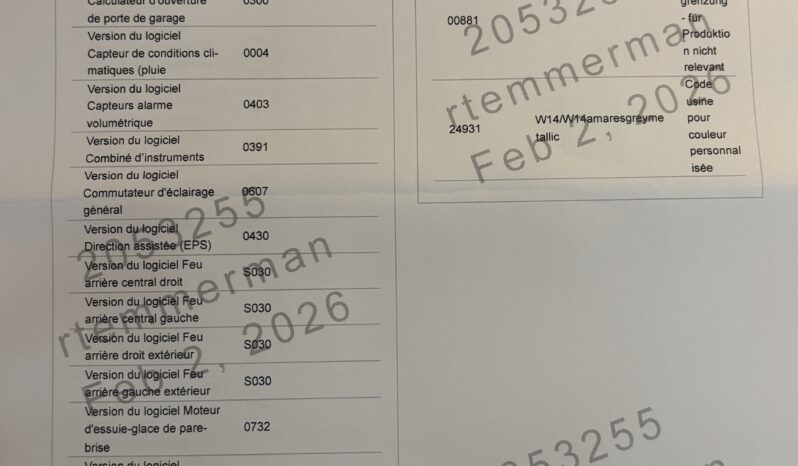 Calculateur d'ouverture
de porte de garage
0300
Version du logiciel
Capteur de conditions cli-
matiques (pluie
0004
Version du logiciel
Capteurs alarme
volumétrique
0403
Version du logiciel
Combiné d'instruments
0391
Version du logiciel
Commutateur d'éclairage
général
0607
Version du logiciel
Direction assistée (EPS)
0430
Version du logiciel Feu
arrière central droit
S030
Version du logiciel Feu
arrière central gauche
S030
Version du logiciel Feu
arrière droit extérieur
S030
Version du logiciel Feu
arrière gauche extérieur
S030
Version du logiciel Moteur
d'essuie-glace de pare-
brise
0732
Version du logiciel
00881
grenzung
- für
Produktio
n nicht
relevant
24931
W14/W14amaresgreyme
tallic
Code
usine
pour
couleur
personnal
isée
2053255
rtemmerman
Feb 2, 2026
2053255
rtemmerman
Feb 2, 2026
2053255